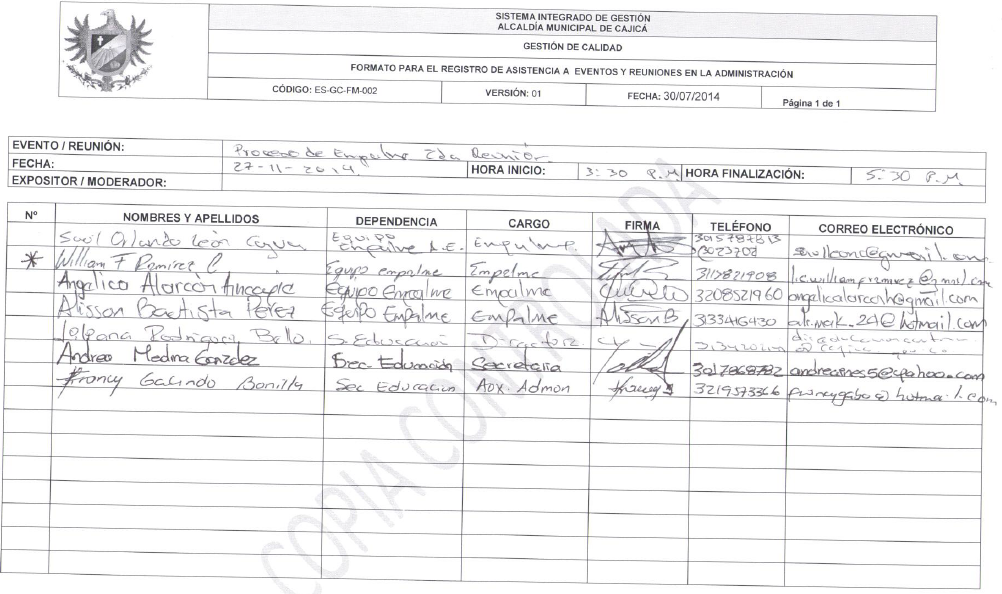 SISTEMA INTEGRADO DE GESTIÓN
ALCALDÍA MUNICIPAL DE CAJICÁ
GESTIÓN DE CALIDAD
FORMATO PARA EL REGISTRO DE ASISTENCIA A EVENTOS Y REUNIONES EN LA ADMINISTRACIÓN
CÓDIGO: ES-GC-FM-002 VERSIÓN: 01 FECHA: 30/07/2014 Página 1 de 1
EVENTO / REUNIÓN: Proceso de Empalme 2da Reunión.
FECHA: 27-11-2014 HORA INICIO: 3:30 P.M HORA FINALIZACIÓN: 5:30 P.M
EXPOSITOR / MODERADOR:
Nº NOMBRES Y APELLIDOS DEPENDENCIA CARGO FIRMA TELÉFONO CORREO ELECTRÓNICO
Saúl Orlando León Equipo Empalme A.E. Empalme.
* William F Ramírez C Equipo empalme Empalme 3117821908
Angelica Alarcón Equipo Empalme Empalme 3208521960 angelicalarconh@gmail.com
Alisson Bautista Pérez Equipo Empalme Empalme Alisson B 3133416430
Rodríguez Bello. S. Educación Directora.
Andrea Medina González Sec. Educación Secretaria 3017868782
Francy Galindo Bonilla Sec Educacion Aux. Admon Francy 3219573366 francygabo@hotmail.com
COPIA CONTROLADA